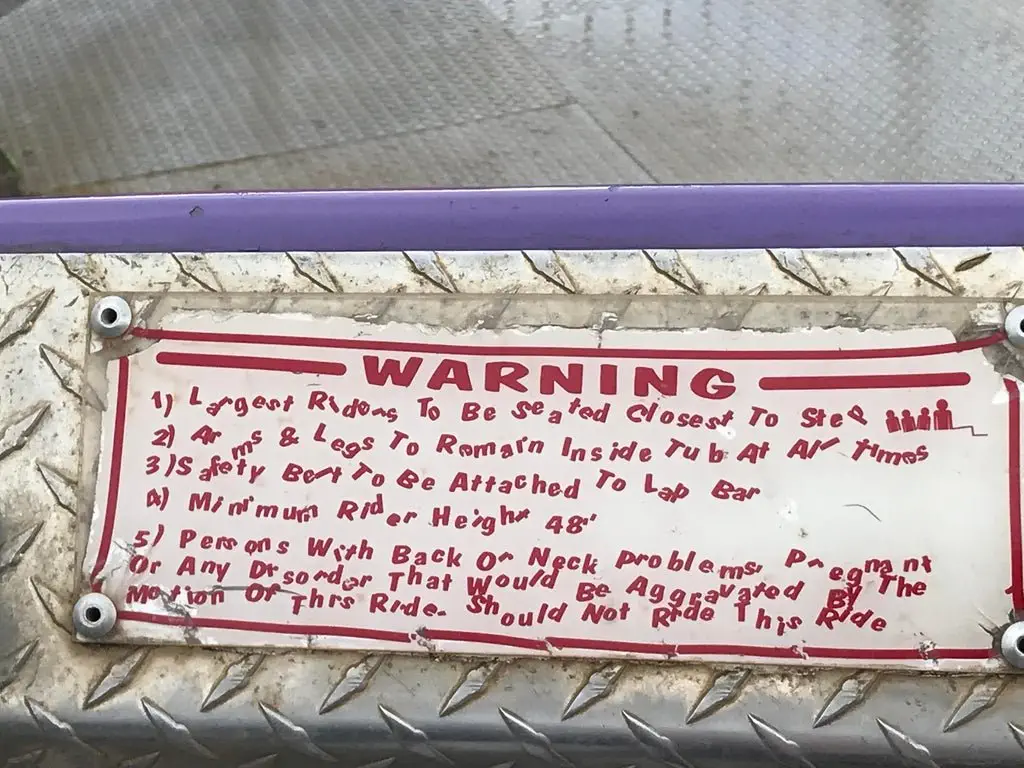 WARNING
1) Largest Riders To Be Seated Closest To Step
2) Arms & Legs To Remain Inside Tub At All Times
3) Safety Belt To Be Attached To Lap Bar
4) Minimum Rider Height 48"
5) Persons With Back Or Neck Problems, Pregnant
Or Any Disorder That Would Be Aggravated By The
Motion Of This Ride. Should Not Ride This Ride